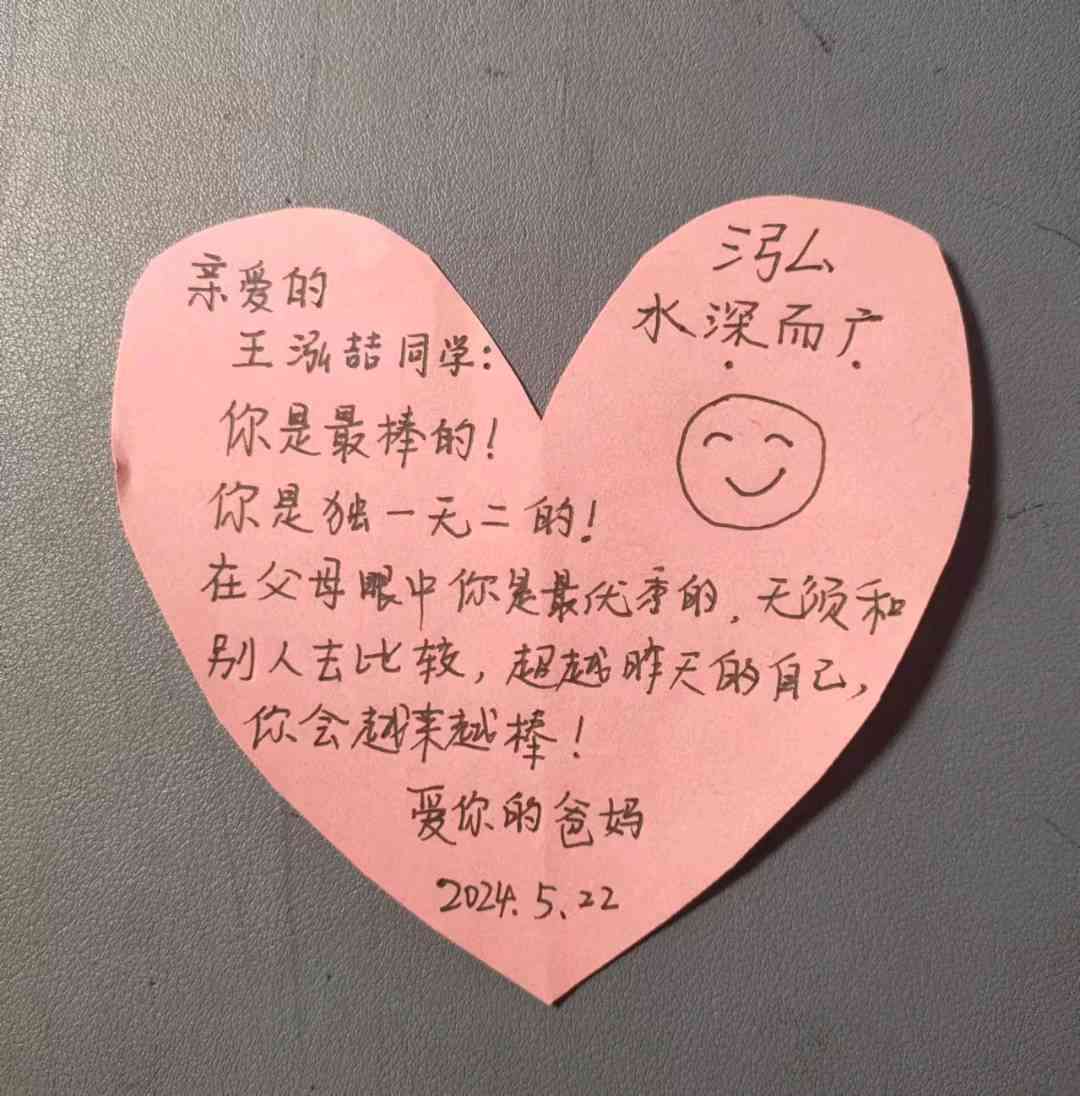 亲爱的
王泓喆同学:
你是最棒的!
你是独一无二的!
在父母眼中你是最优秀的,无须和
别人去比较,超越昨天的自己,
你会越来越棒!
爱你的爸妈
2024.5.22
泓
水深而广